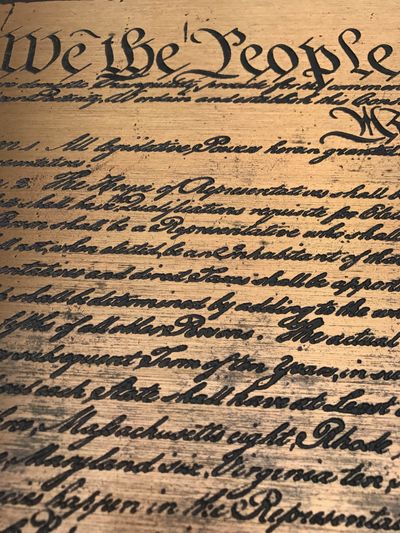 We the People
insure domestic Tranquility, provide for the common
our Posterity, do ordain and establish this Cons
All legislative Powers herein granted
Representatives
The House of Representatives shall
shall have Qualifications requisite for Elec
Person shall be a Representative who shall
not, when elected, be an Inhabitant of that
Representatives and direct Taxes shall be apport
shall be determined by adding to the
fifths of all other Persons. The actual
subsequent Term of ten Years, in su
each State shall have at Least
Massachusetts eight, Rhode
Maryland six, Virginia ten,
happen in the Representat